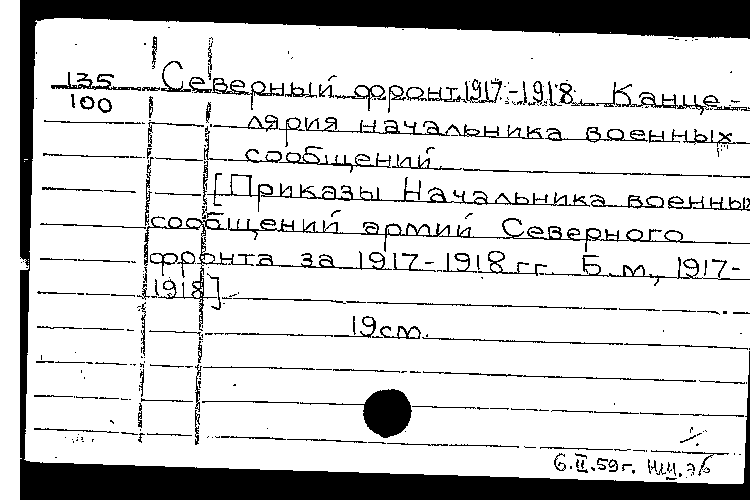 135
100
Северный фронт. 1917-1918. Канце-
лярия начальника военных
сообщений.
[Приказы Начальника военных
сообщений армий Северного
фронта за 1917-1918 гг. Б.м., 1917-
1918]
19см.
6.II.59г.